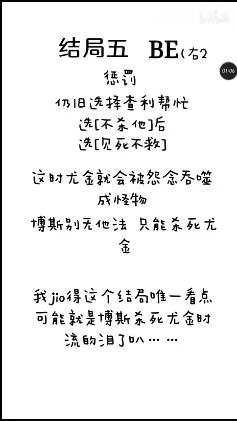 结局五 BE(右2
惩罚
01:06
仍旧选择查利帮忙
选[不杀他]后
选[见死不救]
这时尤金就会被怨念吞噬
成怪物
博斯别无他法 只能杀死尤
金
我jio得这个结局唯一看点
可能就是博斯杀死尤金时
流的泪了叭……